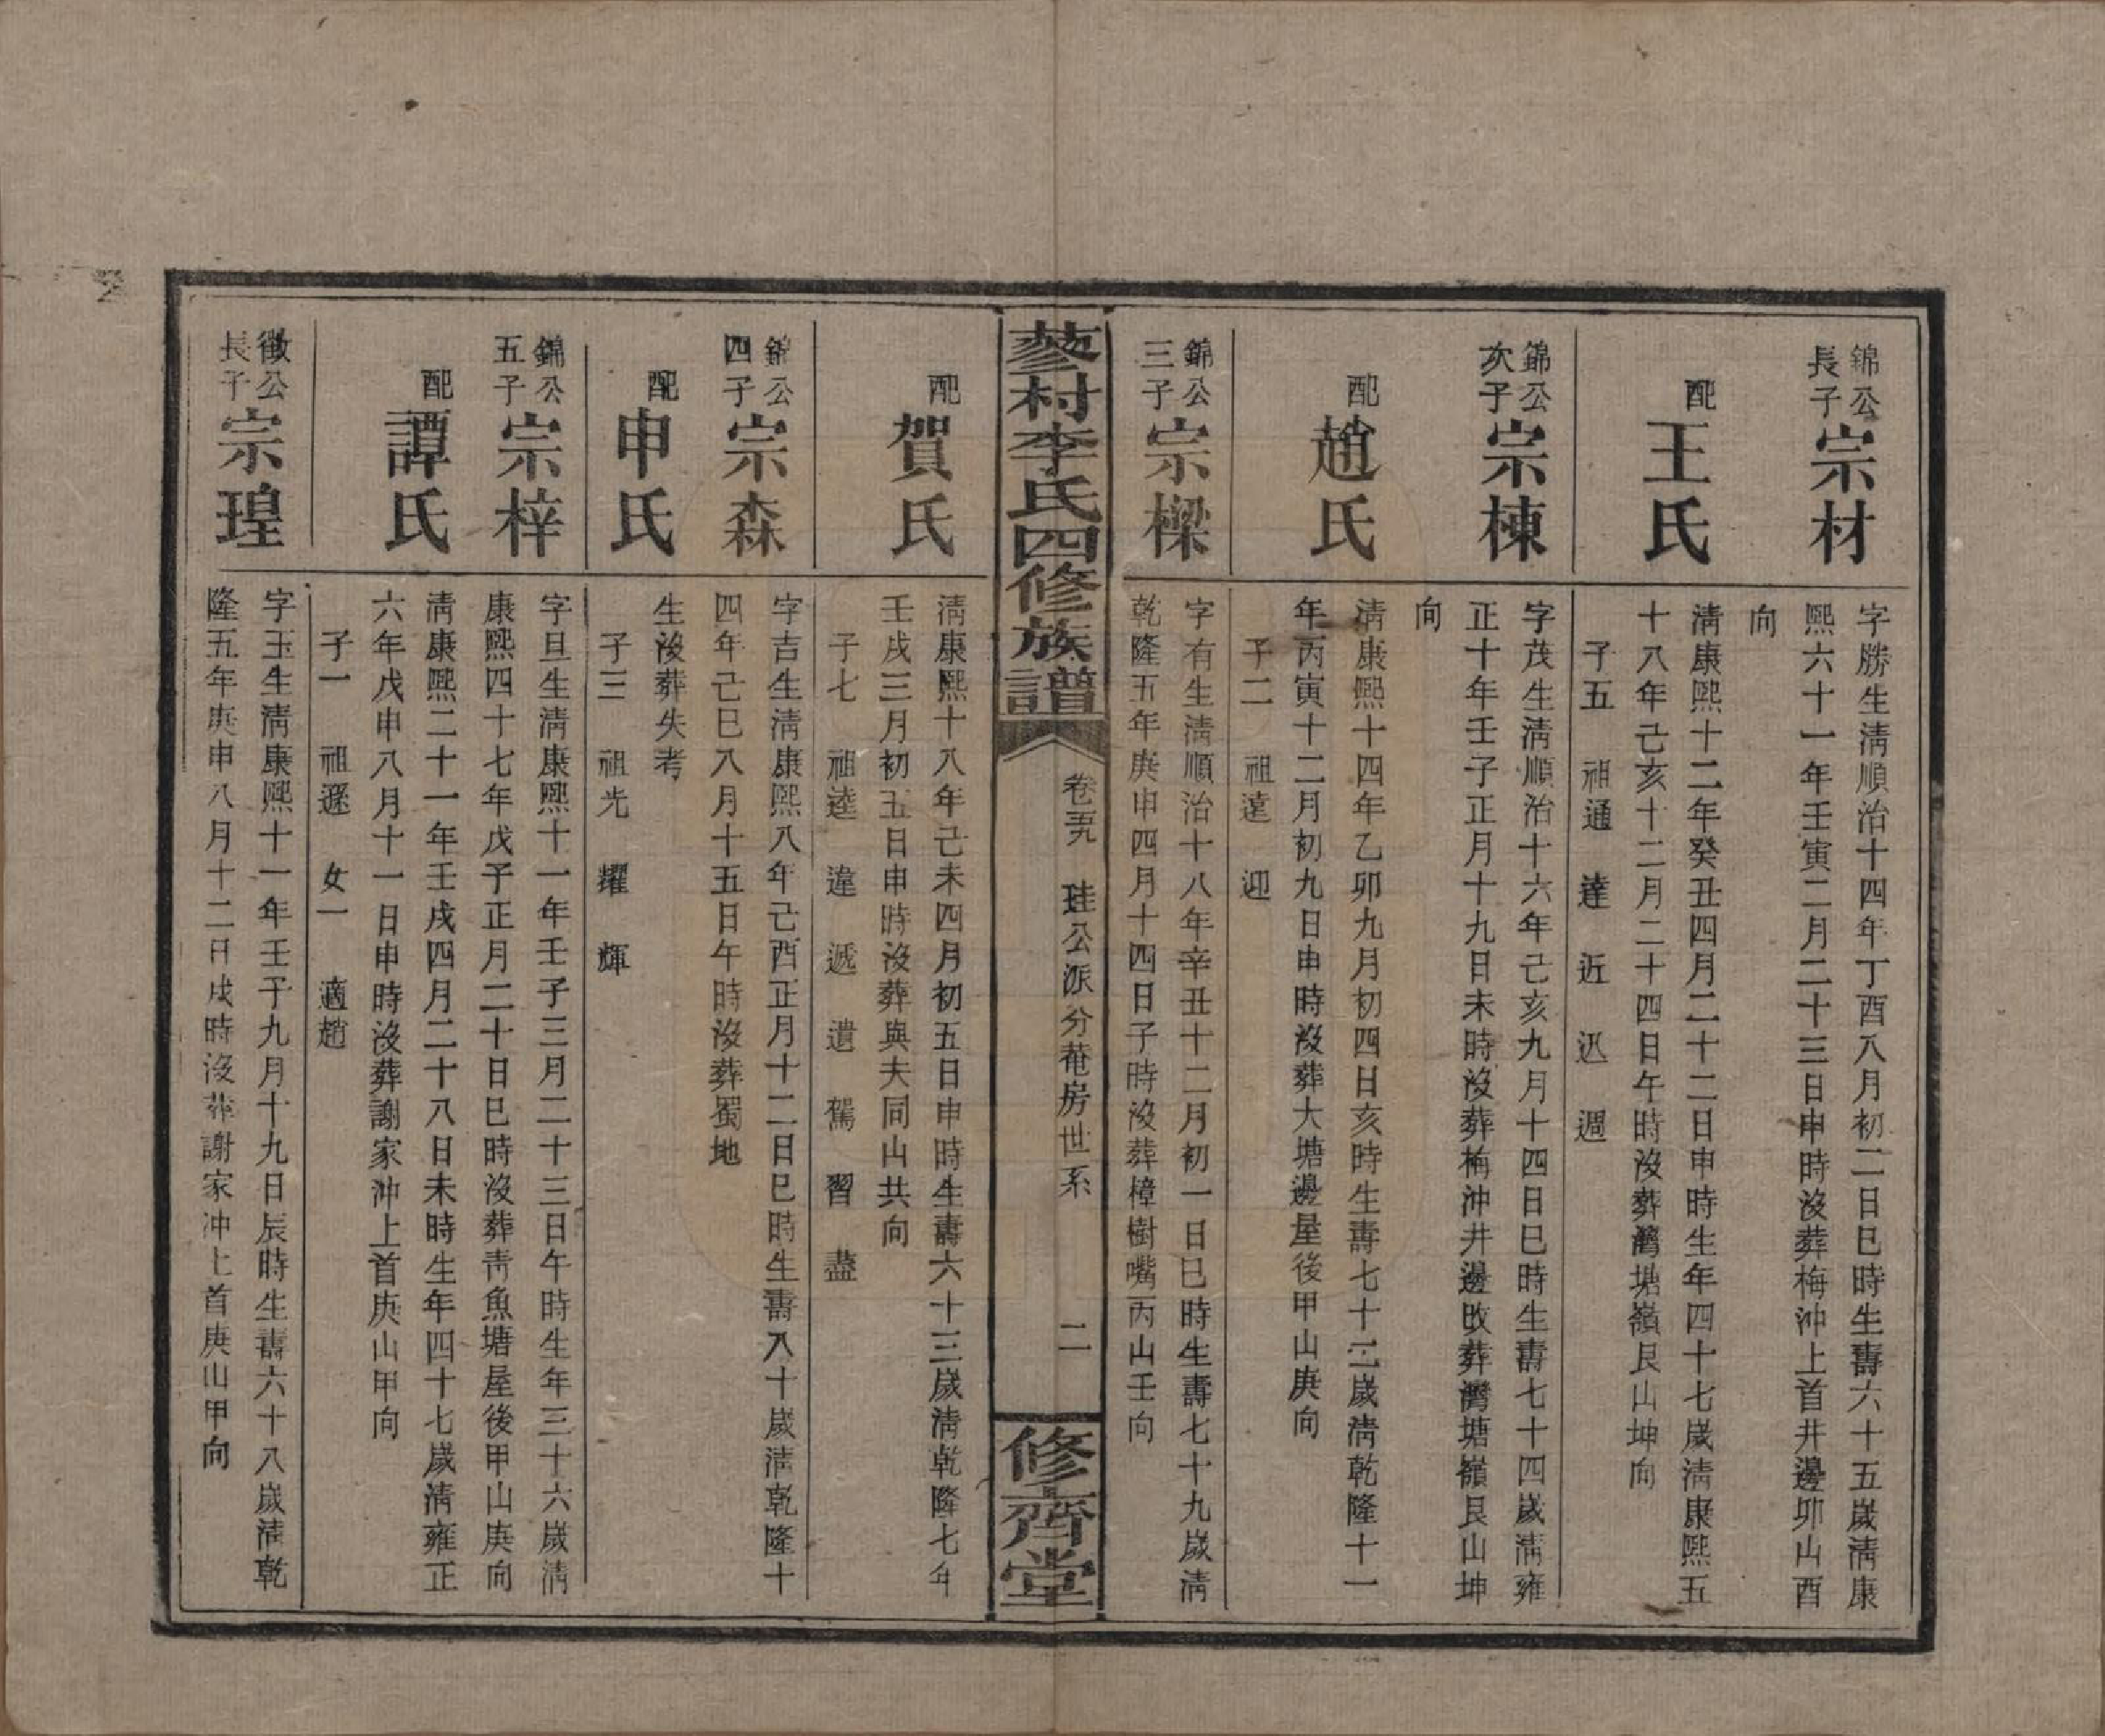 錦公長子宗材
字勝生淸順治十四年丁酉八月初二日巳時生壽六十五歲淸康
熙六十一年壬寅二月二十三日申時沒葬梅沖上首井邊卯山酉
向
配王氏
淸康熙十二年癸丑四月二十二日申時生年四十七歲淸康熙五
十八年己亥十二月二十四日午時沒葬灣塘嶺艮山坤向
子五 祖通 達 近 迅 週
錦公次子宗棟
字茂生淸順治十六年己亥九月十四日巳時生壽七十四歲淸雍
正十年壬子正月十九日未時沒葬梅沖井邊改葬灣塘嶺艮山坤
向
配趙氏
淸康熙十四年乙卯九月初四日亥時生壽七十二歲淸乾隆十一
年丙寅十二月初九日申時沒葬大塘邊屋後甲山庚向
子二 祖遠 迎
錦公三子宗樑
字有生淸順治十八年辛丑十二月初一日巳時生壽七十九歲淸
乾隆五年庚申四月十四日子時沒葬樟樹嘴丙山壬向
蓼村李氏四修族譜
卷五九 珪公派分菴房世系 二
修齊堂
配賀氏
淸康熙十八年己未四月初五日申時生壽六十三歲淸乾隆七年
壬戌三月初五日申時沒葬與夫同山共向
子七 祖逵 違 遞 遺 駕 習 盡
錦公四子宗森
字吉生淸康熙八年己酉正月十二日巳時生壽八十歲淸乾隆十
四年己巳八月十五日午時沒葬蜀地
配申氏
生沒葬失考
子三 祖光 耀 輝
錦公五子宗梓
字旦生淸康熙十一年壬子三月二十三日午時生年三十六歲淸
康熙四十七年戊子正月二十日巳時沒葬靑魚塘屋後甲山庚向
配譚氏
淸康熙二十一年壬戌四月二十八日未時生年四十七歲淸雍正
六年戊申八月十一日申時沒葬謝家沖上首庚山甲向
子一 祖遜 女一 適趙
徵公長子宗瑝
字玉生淸康熙十一年壬子九月十九日辰時生壽六十八歲淸乾
隆五年庚申八月十二日戌時沒葬謝家沖上首庚山甲向